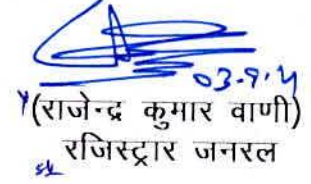 03.9.21
(राजेन्द्र कुमार वाणी)
रजिस्ट्रार जनरल